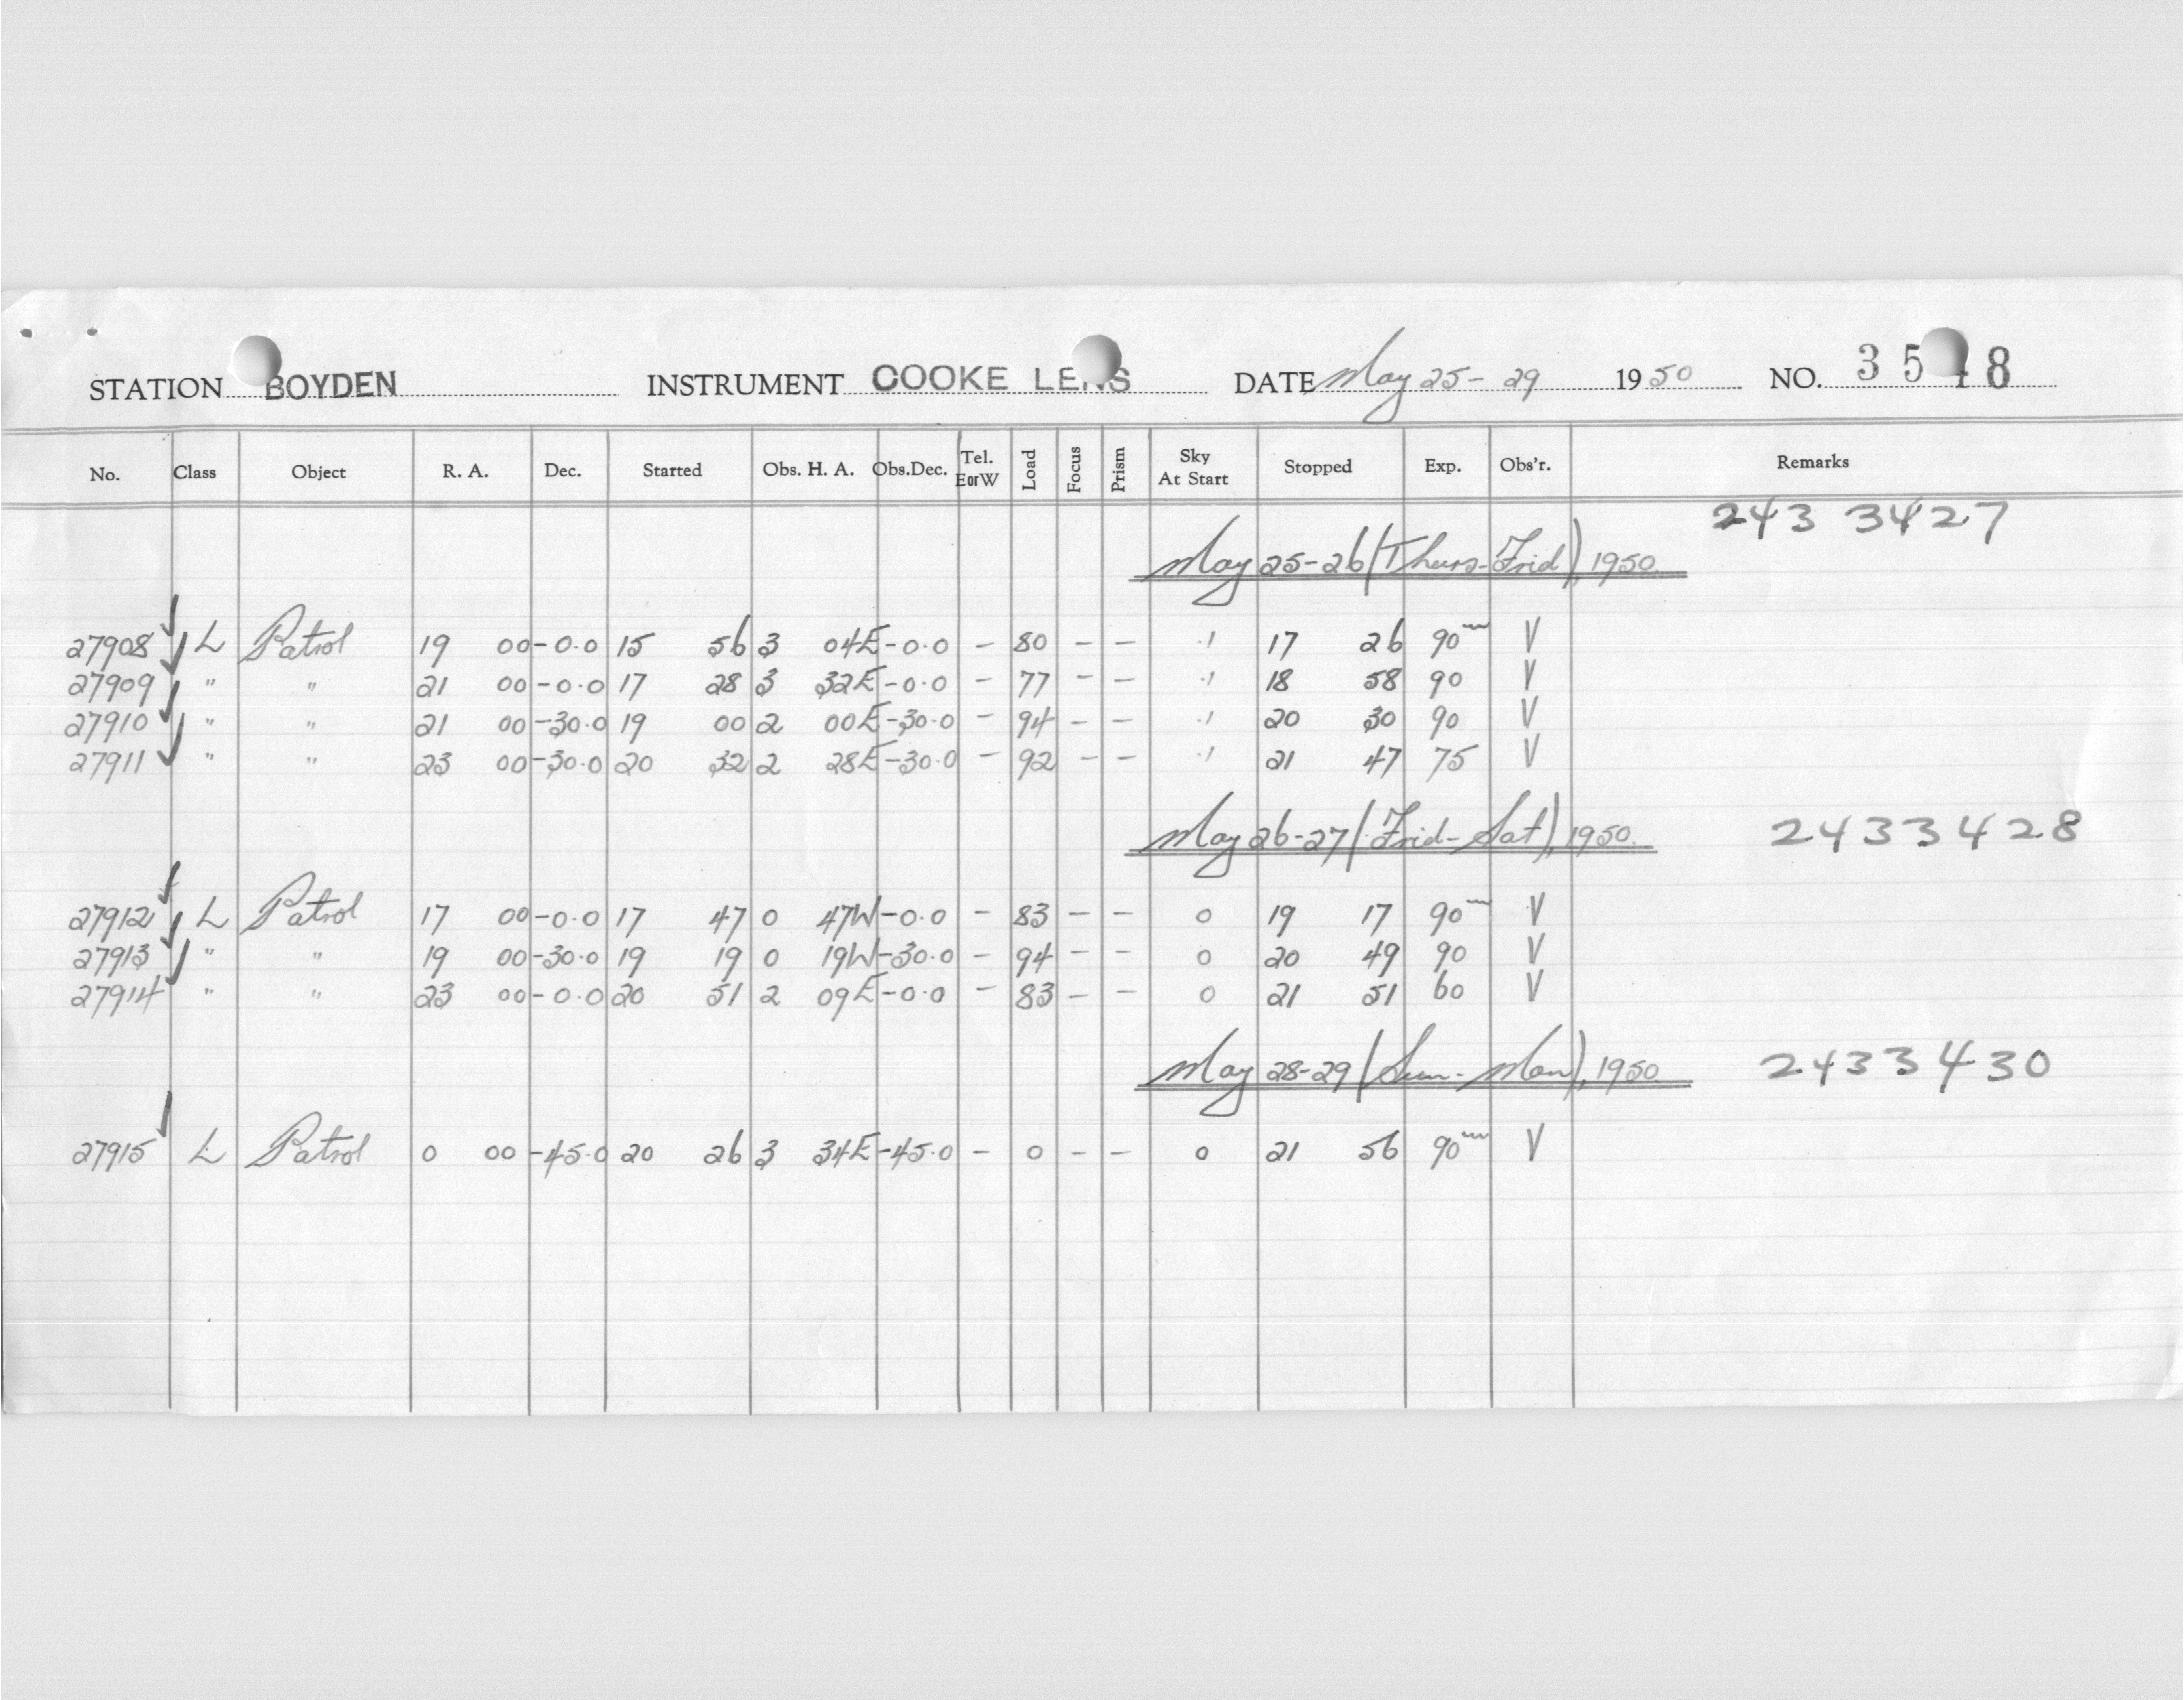 STATION BOYDEN INSTRUMENT COOKE LENS DATE May 25 - 29 19 50 NO. 35 8
No. Class Object R. A. Dec. Started Obs. H. A. Obs.Dec. Tel. E or W Load Focus Prism Sky At Start Stopped Exp. Obs'r. Remarks
243 3427
May 25-26 (Thurs-Frid), 1950.
27908 L Patrol 19 00 -0.0 15 56 3 04E -0.0 - 80 - - .1 17 26 90m V
27909 " " 21 00 -0.0 17 28 3 32E -0.0 - 77 - - .1 18 58 90 V
27910 " " 21 00 -30.0 19 00 2 00E -30.0 - 94 - - .1 20 30 90 V
27911 " " 23 00 -30.0 20 32 2 28E -30.0 - 92 - - .1 21 47 75 V
May 26-27 (Frid-Sat), 1950. 2433428
27912 L Patrol 17 00 -0.0 17 47 0 47W -0.0 - 83 - - 0 19 17 90m V
27913 " " 19 00 -30.0 19 19 0 19W -30.0 - 94 - - 0 20 49 90 V
27914 " " 23 00 -0.0 20 51 2 09E -0.0 - 83 - - 0 21 51 60 V
May 28-29 (Sun-Mon), 1950. 2433430
27915 L Patrol 0 00 -45.0 20 26 3 34E -45.0 - 0 - - 0 21 56 90m V